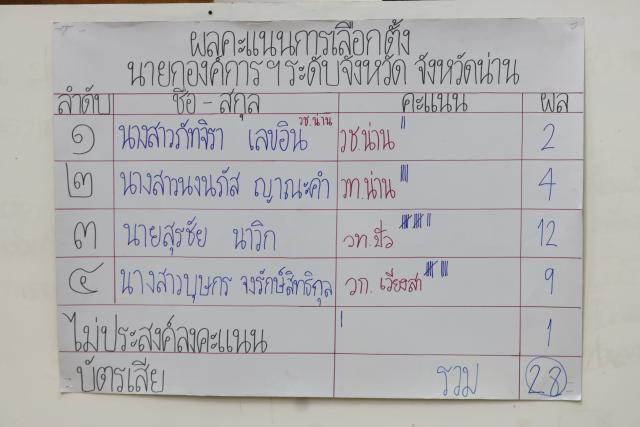 ผลคะแนนการเลือกตั้ง
นายกองค์การฯระดับจังหวัด จังหวัดน่าน
ลำดับ ชื่อ - สกุล คะแนน ผล
๑ นางสาวภัทจิรา เลขอิน วช.น่าน วช.น่าน 2
๒ นางสาวนงนภัส ญาณะคำ วท.น่าน 4
๓ นายสุรชัย นาวิก วท.ปัว 12
๔ นางสาวบุษกร จงรักษ์สิทธิกุล วก. เวียงสา 9
ไม่ประสงค์ลงคะแนน 1
บัตรเสีย รวม 28